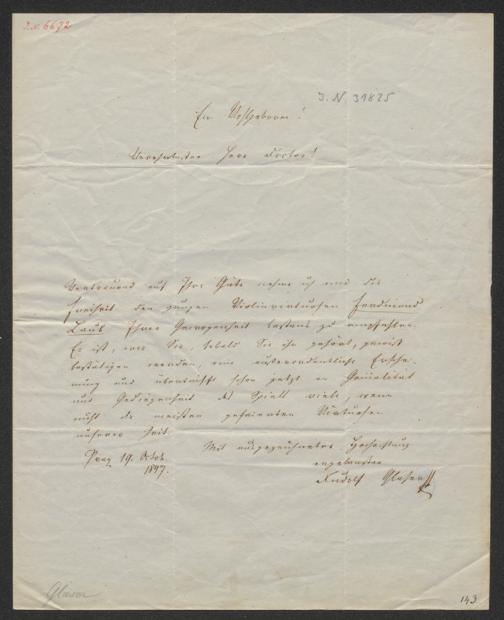 I. N. 6672
I. N. 31825
Euer Wohlgeboren!
Verehrtester Herr Doctor!
Vertrauend auf Ihre Güte nehme ich mir die
Freiheit den jungen Violinvirtuosen Ferdinand
Laub Ihrer Gewogenheit bestens zu empfehlen.
Er ist, was Sie, sobald Sie ihn gehört, gewiß
bestätigen werden, eine außerordentliche Erschei-
nung und übertrifft schon jetzt an Genialität
und Gediegenheit des Spiels viele, wenn
nicht die meisten gefeierten Virtuosen
unserer Zeit.
Mit ausgezeichneter Hochachtung
ergebenster
Prag 19. Octob.
1847.
Rudolf Glaser
Glaser
143